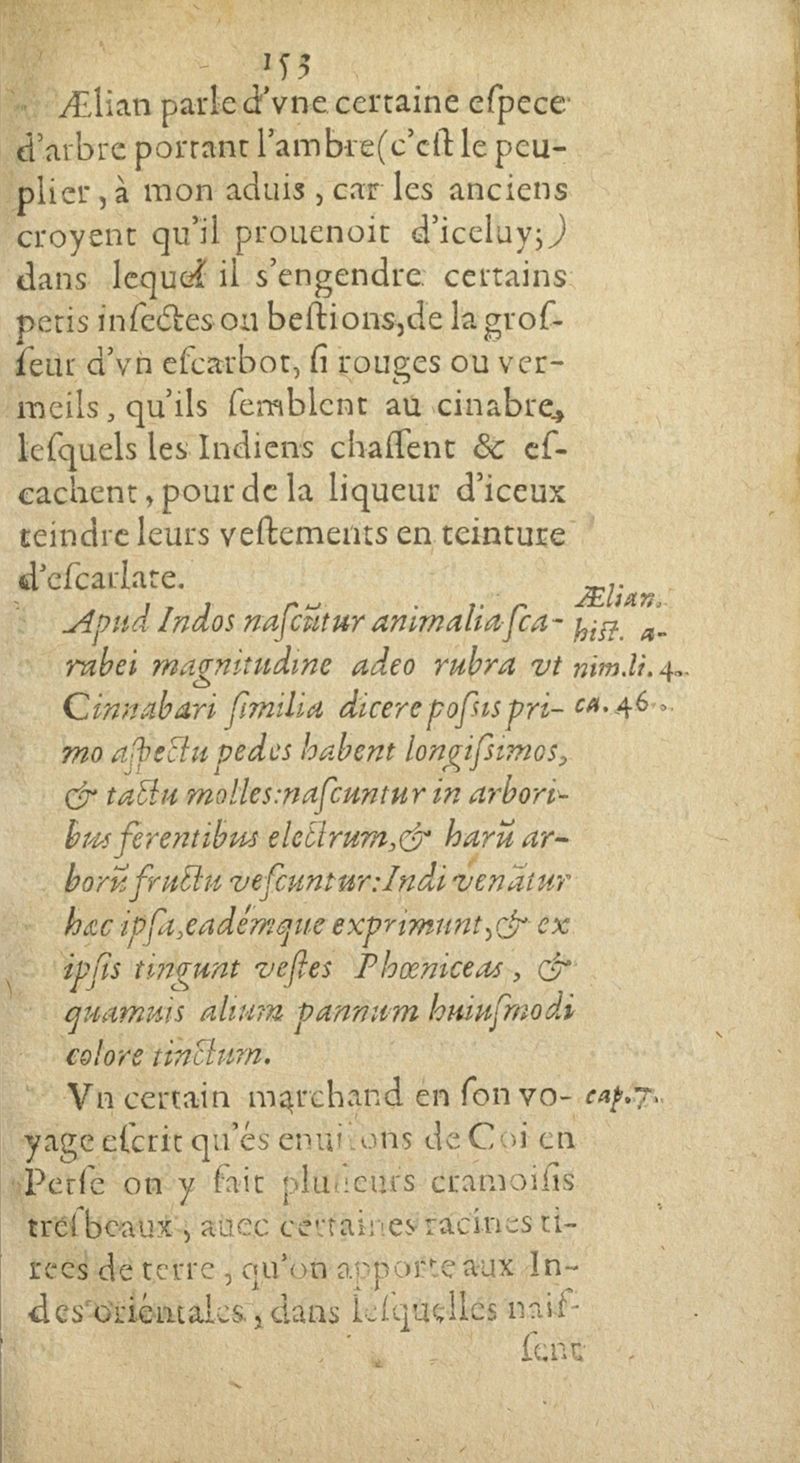 153
Ælian parle d'vne certaine eſpece
d'arbre portant l'ambre(c'eſt le peu-
plier, à mon aduis, car les anciens
croyent qu'il prouenoit d'iceluy;)
dans lequel il s'engendre certains
petis inſectes ou beſtions,de la groſ-
ſeur d'vn eſcarbot, ſi rouges ou ver-
meils, qu'ils ſemblent au cinabre,
leſquels les Indiens chaſſent & eſ-
cachent, pour de la liqueur d'iceux
teindre leurs veſtements en teinture
d'eſcarlate.
Apud Indos naſcũtur animalia ſca-
rabei magnitudine adeo rubra vt
Cinnabari ſimilia dicere poſsis pri-
mo aſpectu pedes habent longiſsimos,
& tactu molles:naſcuntur in arbori-
bus ferentibus electrum,& harũ ar-
borũ fructu veſcuntur:Indi venãtur
hæc ipſa,eadémque exprimunt,& ex
ipſis tingunt veſtes Phœniceas, &
quamuis alium pannum huiuſmodi
colore tinctum.
Ælian.
hiſt. a-
nim.li.4.
ca.46.
Vn certain marchand en ſon vo-
yage eſcrit qu'és enuirons de Coi en
Perſe on y fait pluſieurs cramoiſis
treſbeaux, auec certaines racines ti-
rees de terre, qu'on apporte aux In-
des oriẽtales, dans leſquelles naiſ-
cap.7.
ſent